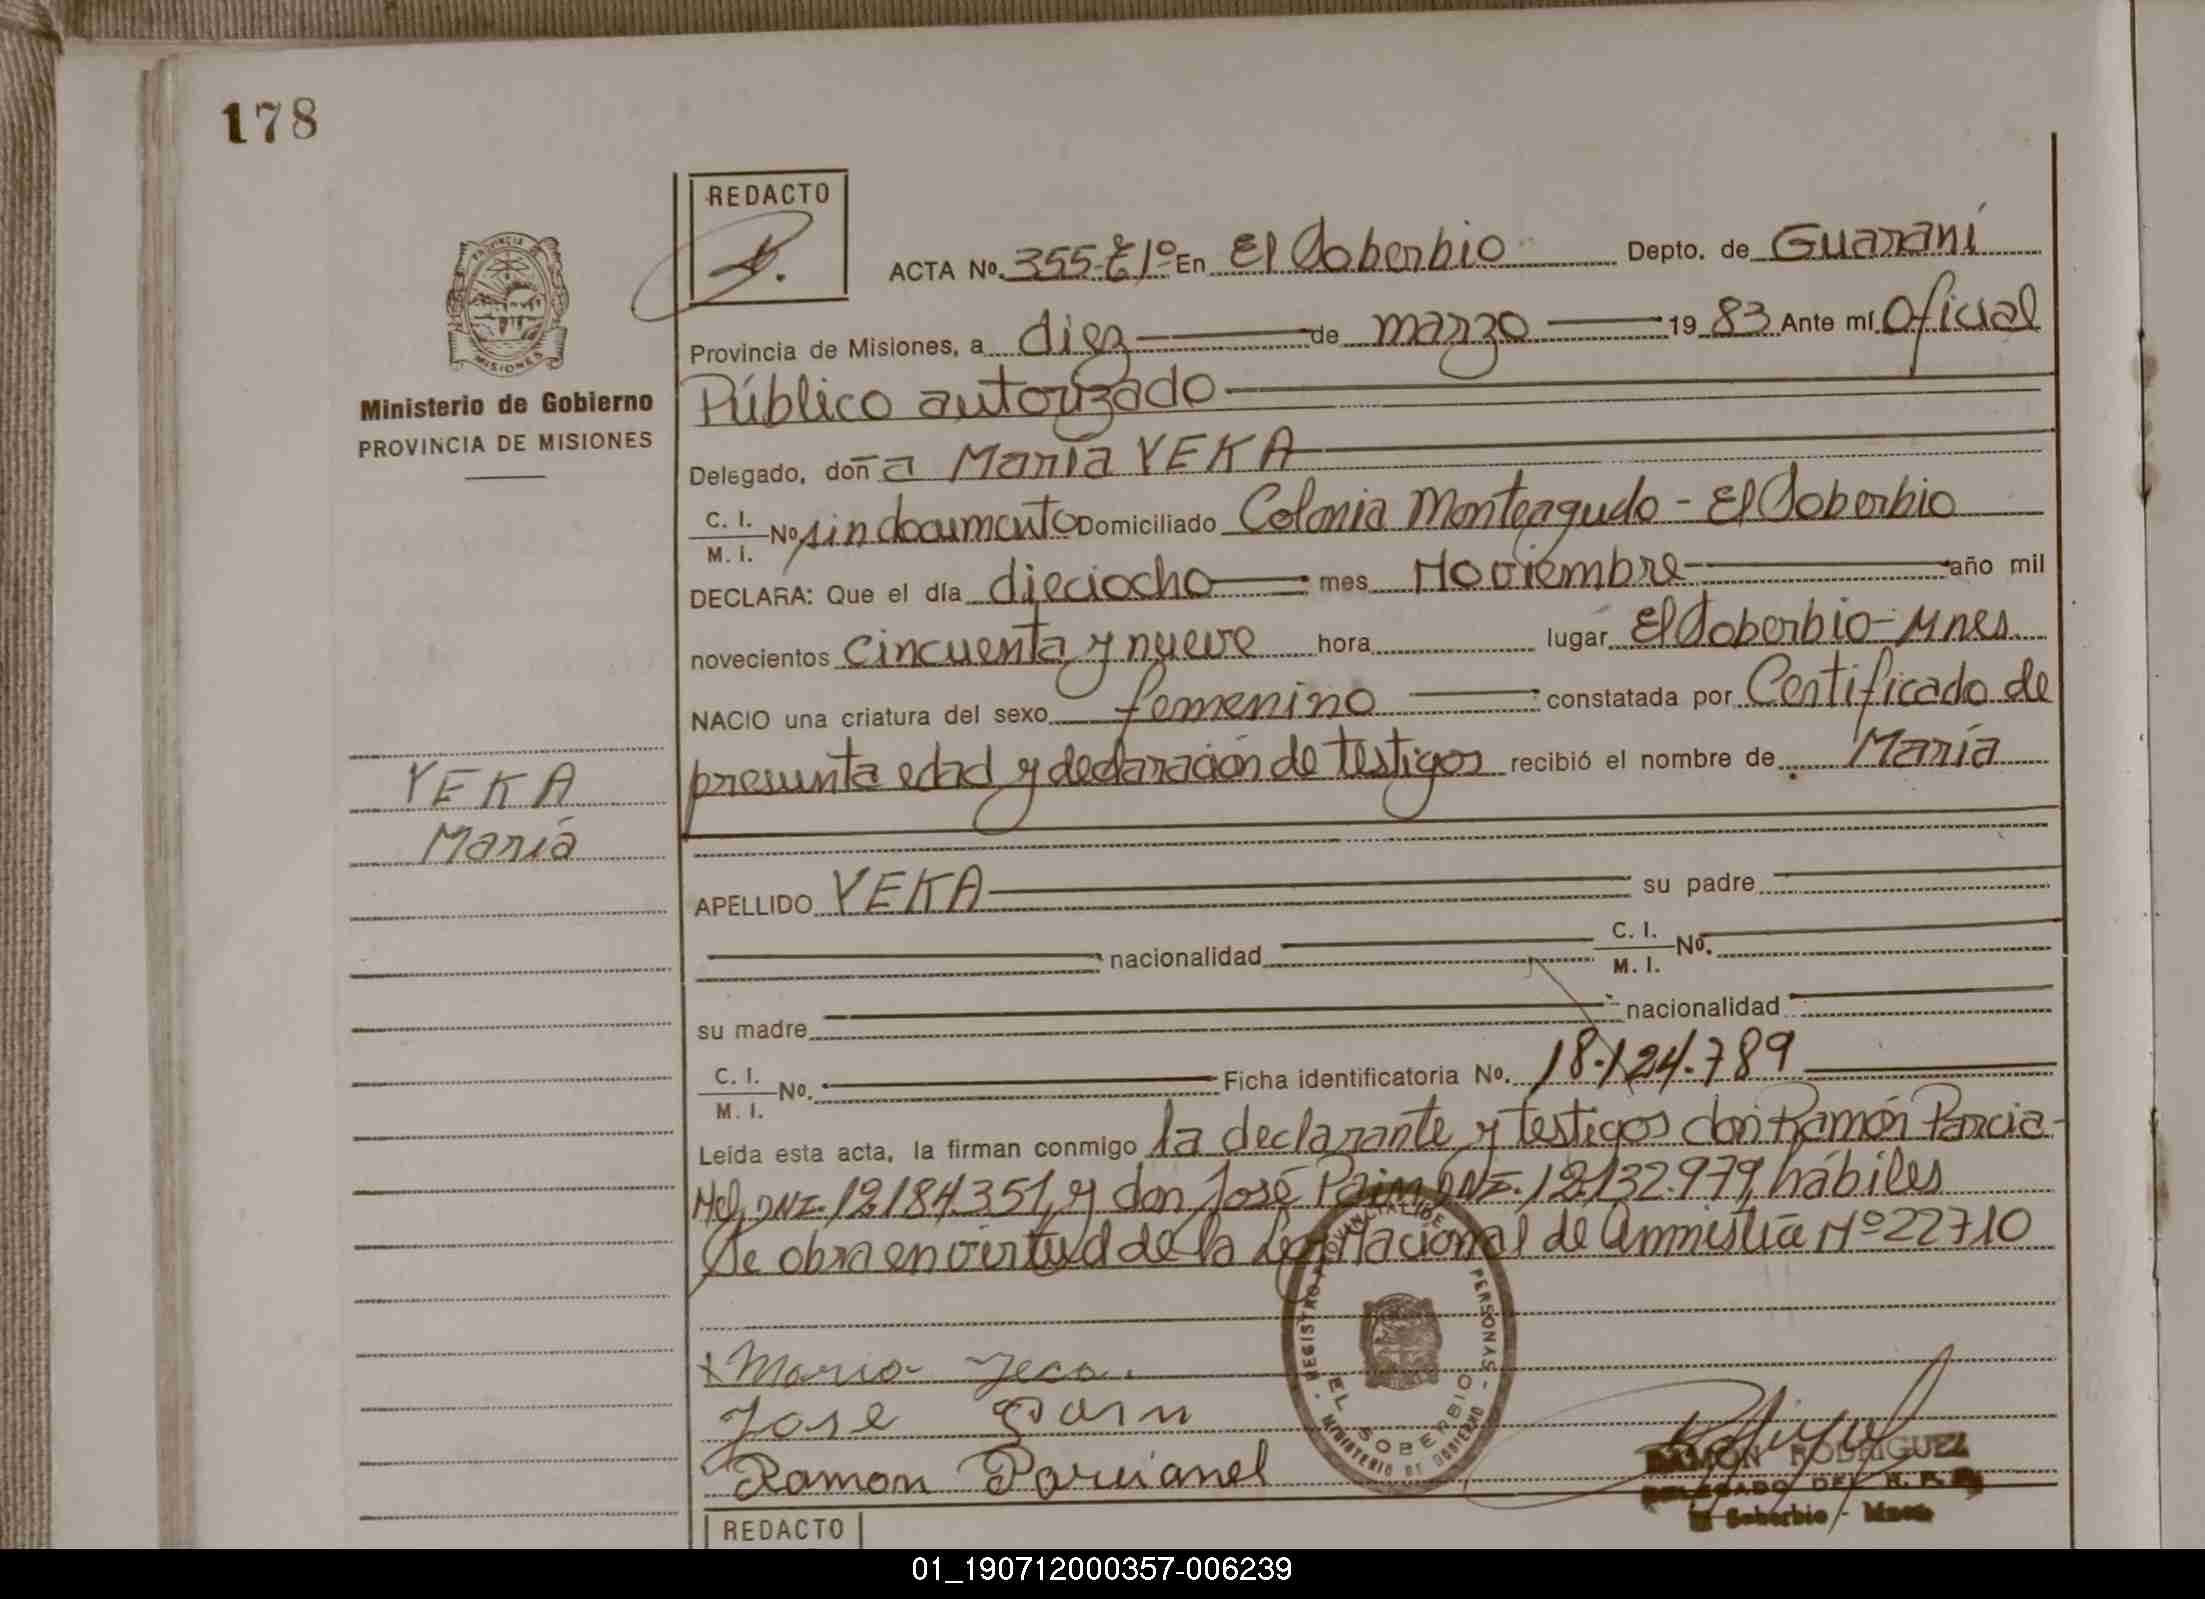 178
REDACTO
ACTA No. 355-t 1º En El Soberbio Depto. de Guaraní
Provincia de Misiones, a diez de marzo 19 83 Ante mí Oficial
Público autorizado
Delegado, doña María YEKA
C. I. / M. I. No sin documento Domiciliado Colonia Monteagudo - El Soberbio
DECLARA: Que el día dieciocho mes Noviembre año mil
novecientos cincuenta y nueve hora lugar El Soberbio-Mnes
NACIO una criatura del sexo femenino constatada por Certificado de
presunta edad y declaración de testigos recibió el nombre de María
APELLIDO YEKA su padre
nacionalidad C. I. / M. I. No.
su madre nacionalidad
C. I. / M. I. No. Ficha identificatoria No. 18.124.789
Leída esta acta, la firman conmigo la declarante y testigos don Ramón Parcia-
Nel, DNI. 12.184.351, y don José Paim DNI. 12.132.979, hábiles
Se obra en virtud de la Ley Nacional de Amnistía Nº 22710
x Maria Yeca.
Jose Paim
Ramon Parcianel
REGISTRO PROVINCIAL DE PERSONAS
EL SOBERBIO
MINISTERIO DE GOBIERNO
RAMON RODRIGUEZ
DELEGADO DEL R. P. P.
El Soberbio - Mnes
REDACTO
PROVINCIA
MISIONES
Ministerio de Gobierno
PROVINCIA DE MISIONES
YEKA
María
01_190712000357-006239